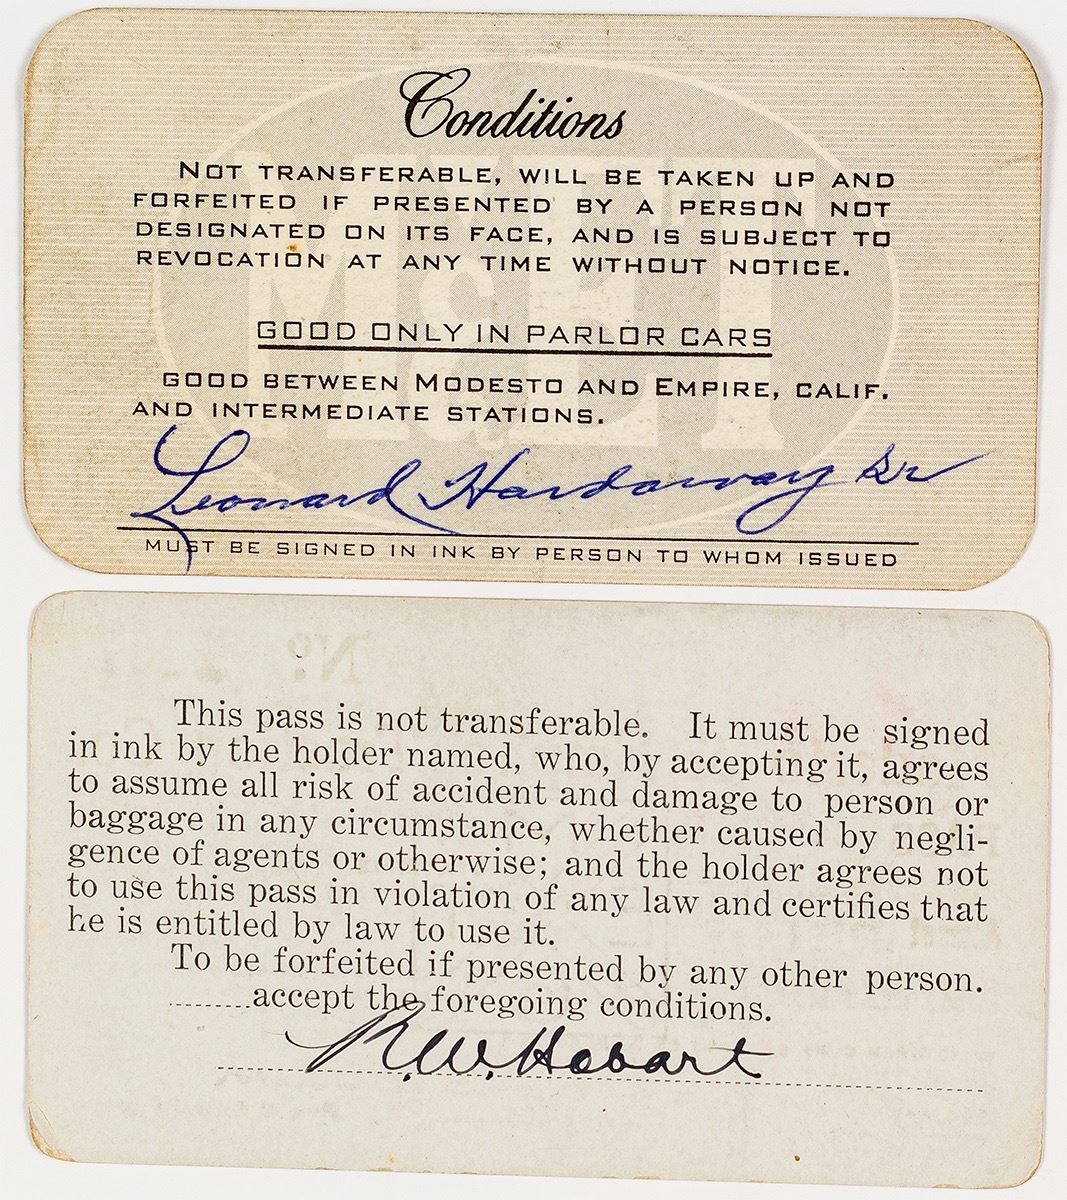 Conditions
NOT TRANSFERABLE, WILL BE TAKEN UP AND
FORFEITED IF PRESENTED BY A PERSON NOT
DESIGNATED ON ITS FACE, AND IS SUBJECT TO
REVOCATION AT ANY TIME WITHOUT NOTICE.
GOOD ONLY IN PARLOR CARS
GOOD BETWEEN MODESTO AND EMPIRE, CALIF.
AND INTERMEDIATE STATIONS.
M&ET
Leonard Hardaway Sr
MUST BE SIGNED IN INK BY PERSON TO WHOM ISSUED
No.
This pass is not transferable. It must be signed
in ink by the holder named, who, by accepting it, agrees
to assume all risk of accident and damage to person or
baggage in any circumstance, whether caused by negli-
gence of agents or otherwise; and the holder agrees not
to use this pass in violation of any law and certifies that
he is entitled by law to use it.
To be forfeited if presented by any other person.
.........accept the foregoing conditions.
R.W. Hobart